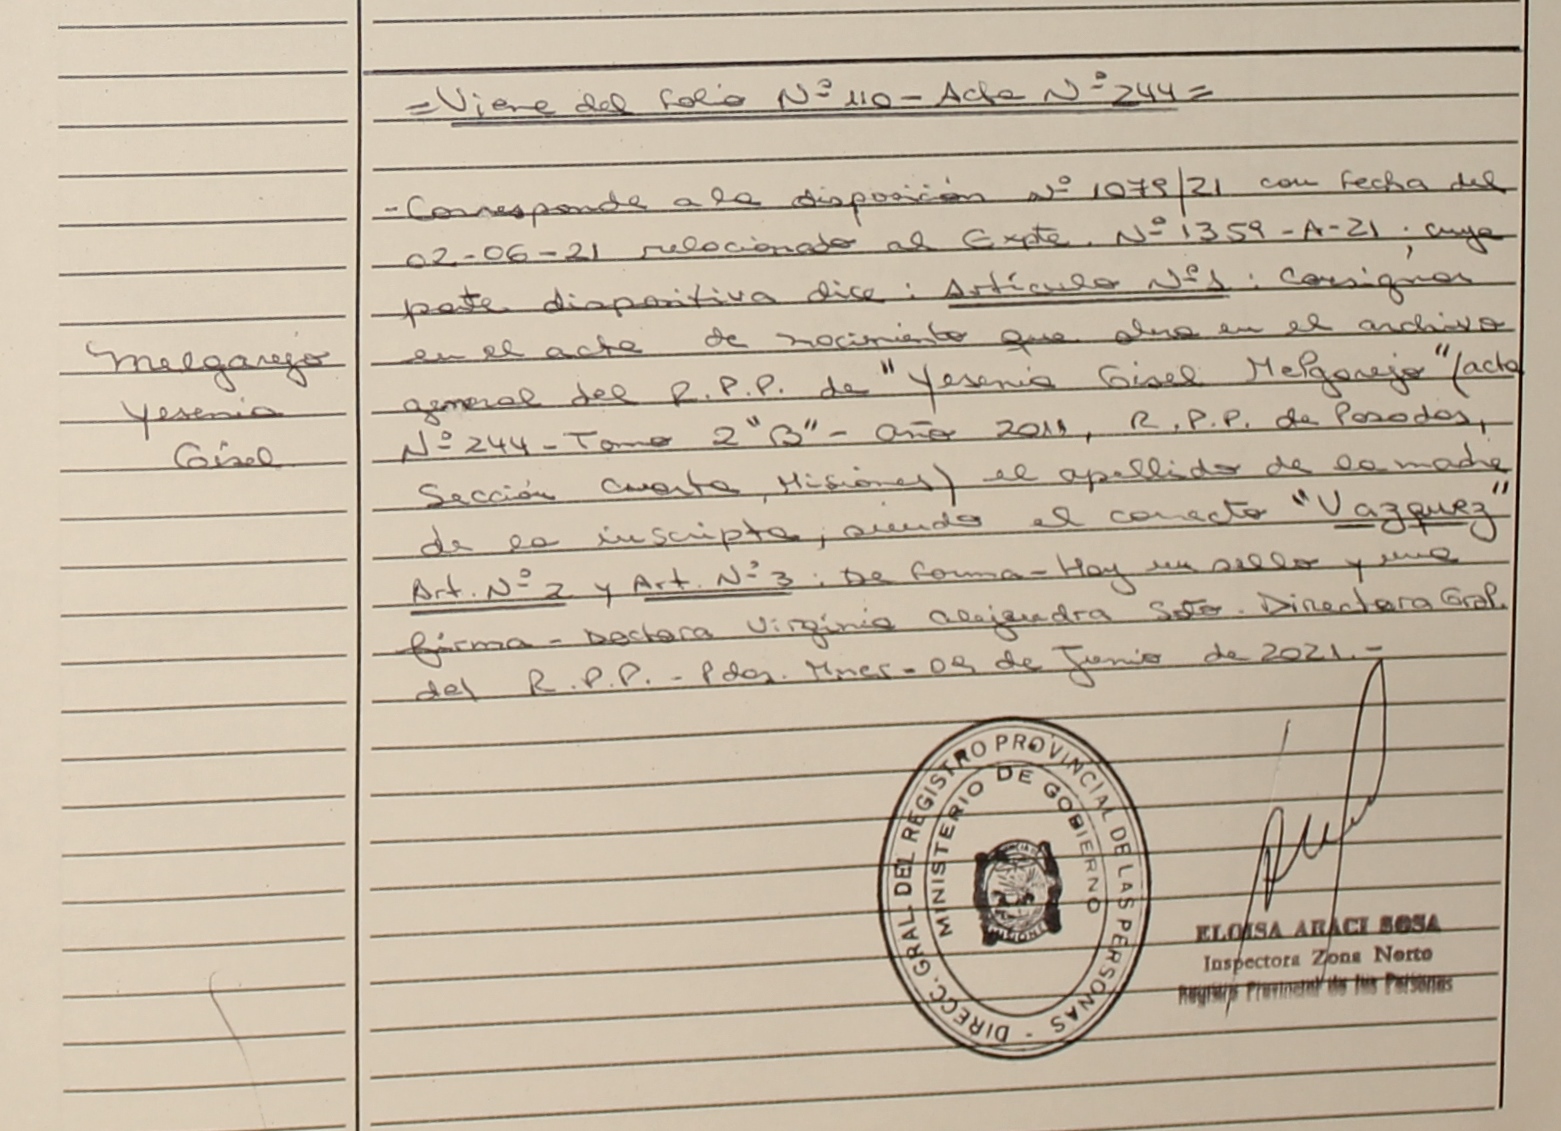 = Viene del folio Nº 110 - Acta Nº 244 =
- Corresponde a la disposición Nº 1079/21 con fecha del
02-06-21 relacionado al Expte. Nº 1359-A-21, cuya
parte dispositiva dice: Artículo Nº 1: Consignar
en el acta de nacimiento que obra en el archivo
general del R.P.P. de "Yesenia Gisel Melgarejo" (acta
Nº 244 - Tomo 2 "B" - año 2011, R.P.P. de Posadas,
Sección Cuarta, Misiones) el apellido de la madre
de la inscripta, siendo el correcto "Vazquez"
Art. Nº 2 y Art. Nº 3: De forma - Hay un sello y una
firma - Doctora Virginia Alejandra Soto. Directora Gral.
del R.P.P. - Pdas. Mnes - 09 de Junio de 2021.-
Melgarejo
Yesenia
Gisel
DIRECC. GRAL. DEL REGISTRO PROVINCIAL DE LAS PERSONAS -
MINISTERIO DE GOBIERNO
ELOISA ARACI SOSA
Inspectora Zona Norte
Registro Provincial de las Personas